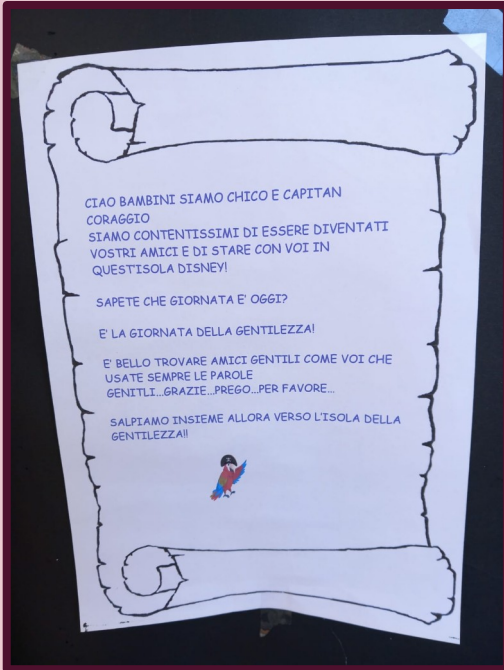 CIAO BAMBINI SIAMO CHICO E CAPITAN
CORAGGIO
SIAMO CONTENTISSIMI DI ESSERE DIVENTATI
VOSTRI AMICI E DI STARE CON VOI IN
QUEST'ISOLA DISNEY!
SAPETE CHE GIORNATA E' OGGI?
E' LA GIORNATA DELLA GENTILEZZA!
E' BELLO TROVARE AMICI GENTILI COME VOI CHE
USATE SEMPRE LE PAROLE
GENITLI...GRAZIE...PREGO...PER FAVORE...
SALPIAMO INSIEME ALLORA VERSO L'ISOLA DELLA
GENTILEZZA!!